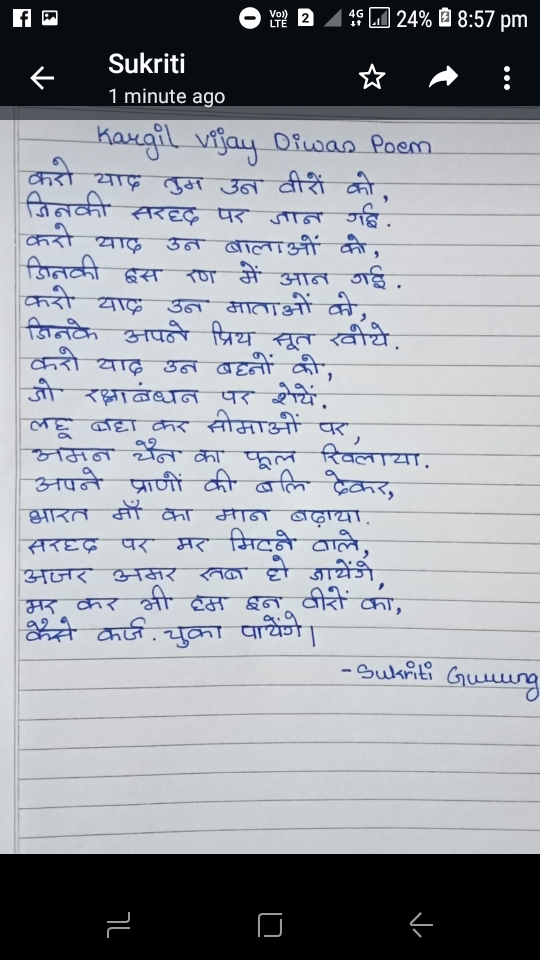 Vo)) LTE 2 4G 24% 8:57 pm
Sukriti
1 minute ago
Kargil Vijay Diwas Poem
करो याद तुम उन वीरों को,
जिनकी सरहद पर जान गई.
करो याद उन बालाओं को,
जिनकी इस रण में आन गई.
करो याद उन माताओं को,
जिनके अपने प्रिय सूत खोये.
करो याद उन बहनों को,
जो रक्षाबंधन पर रोयें.
लहू बहा कर सीमाओं पर,
अमन चैन का फूल खिलाया.
अपने प्राणों की बलि देकर,
भारत माँ का मान बढ़ाया.
सरहद पर मर मिटने वाले,
अजर अमर सब हो जायेंगे,
मर कर भी हम इन वीरों का,
कैसे कर्ज. चुका पायेंगे।
-Sukriti Guuung